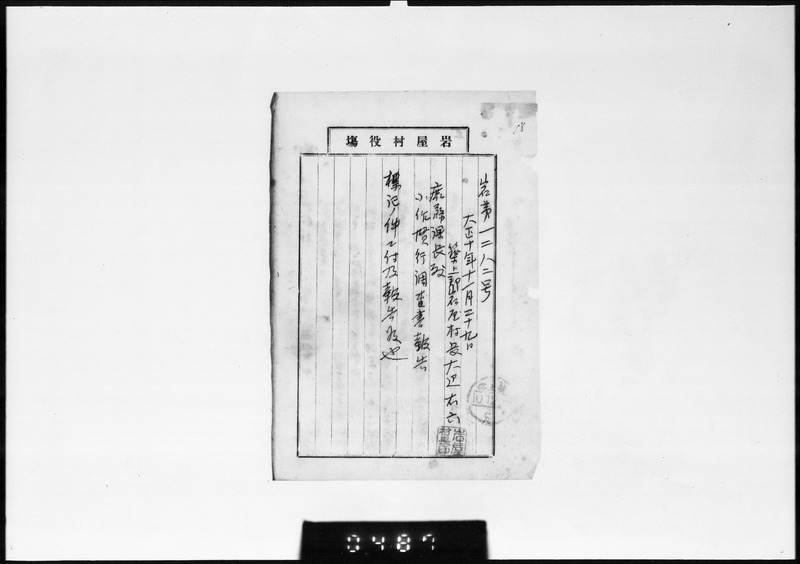 18
岩屋村役場
岩第一二八二号
大正十年十一月二十九日
築上郡岩屋村長大江右六
庶務課長殿
小作慣行調査書報告
標記ノ件ニ付及報告候也
岩屋村長印
0487